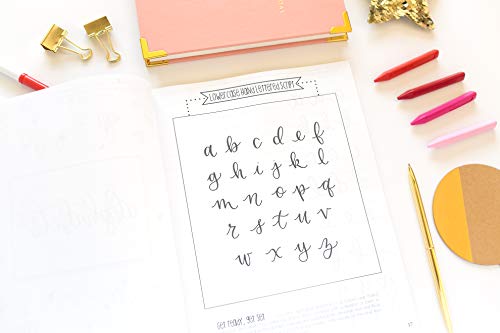 Lowercase Hand Lettered Script
a b c d e f
g h i j k l
m n o p q
r s t u v
w x y z
get ready, get set